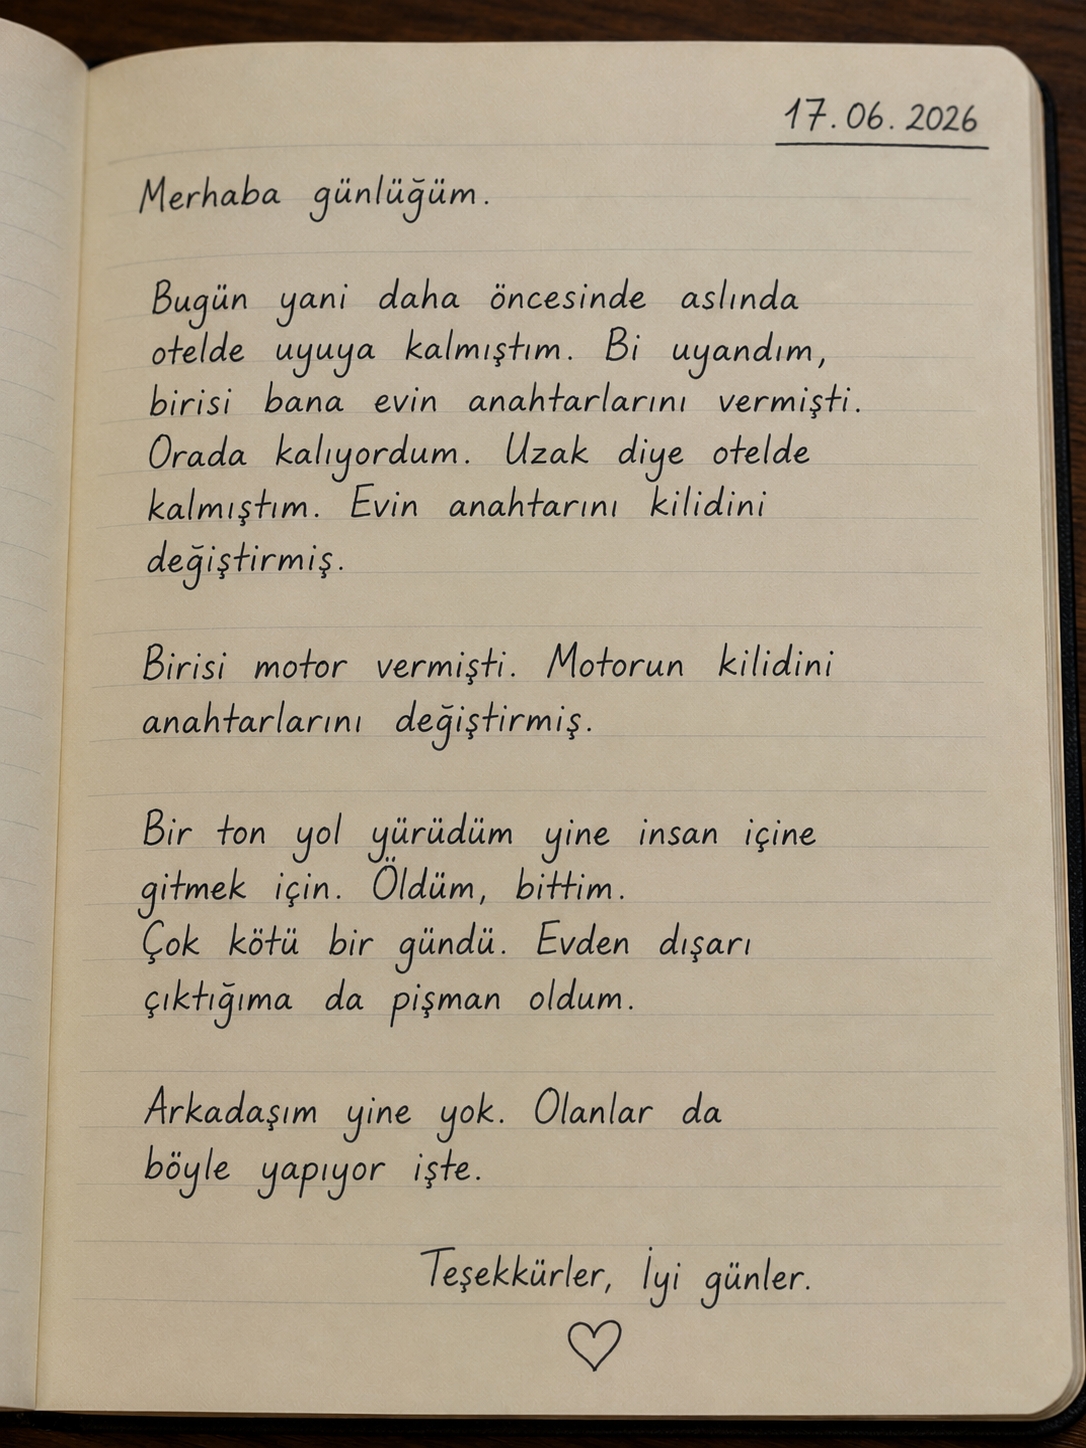 17.06.2026
Merhaba günlüğüm.
Bugün yani daha öncesinde aslında
otelde uyuya kalmıştım. Bi uyandım,
birisi bana evin anahtarlarını vermişti.
Orada kalıyordum. Uzak diye otelde
kalmıştım. Evin anahtarını kilidini
değiştirmiş.
Birisi motor vermişti. Motorun kilidini
anahtarlarını değiştirmiş.
Bir ton yol yürüdüm yine insan içine
gitmek için. Öldüm, bittim.
Çok kötü bir gündü. Evden dışarı
çıktığıma da pişman oldum.
Arkadaşım yine yok. Olanlar da
böyle yapıyor işte.
Teşekkürler, İyi günler.